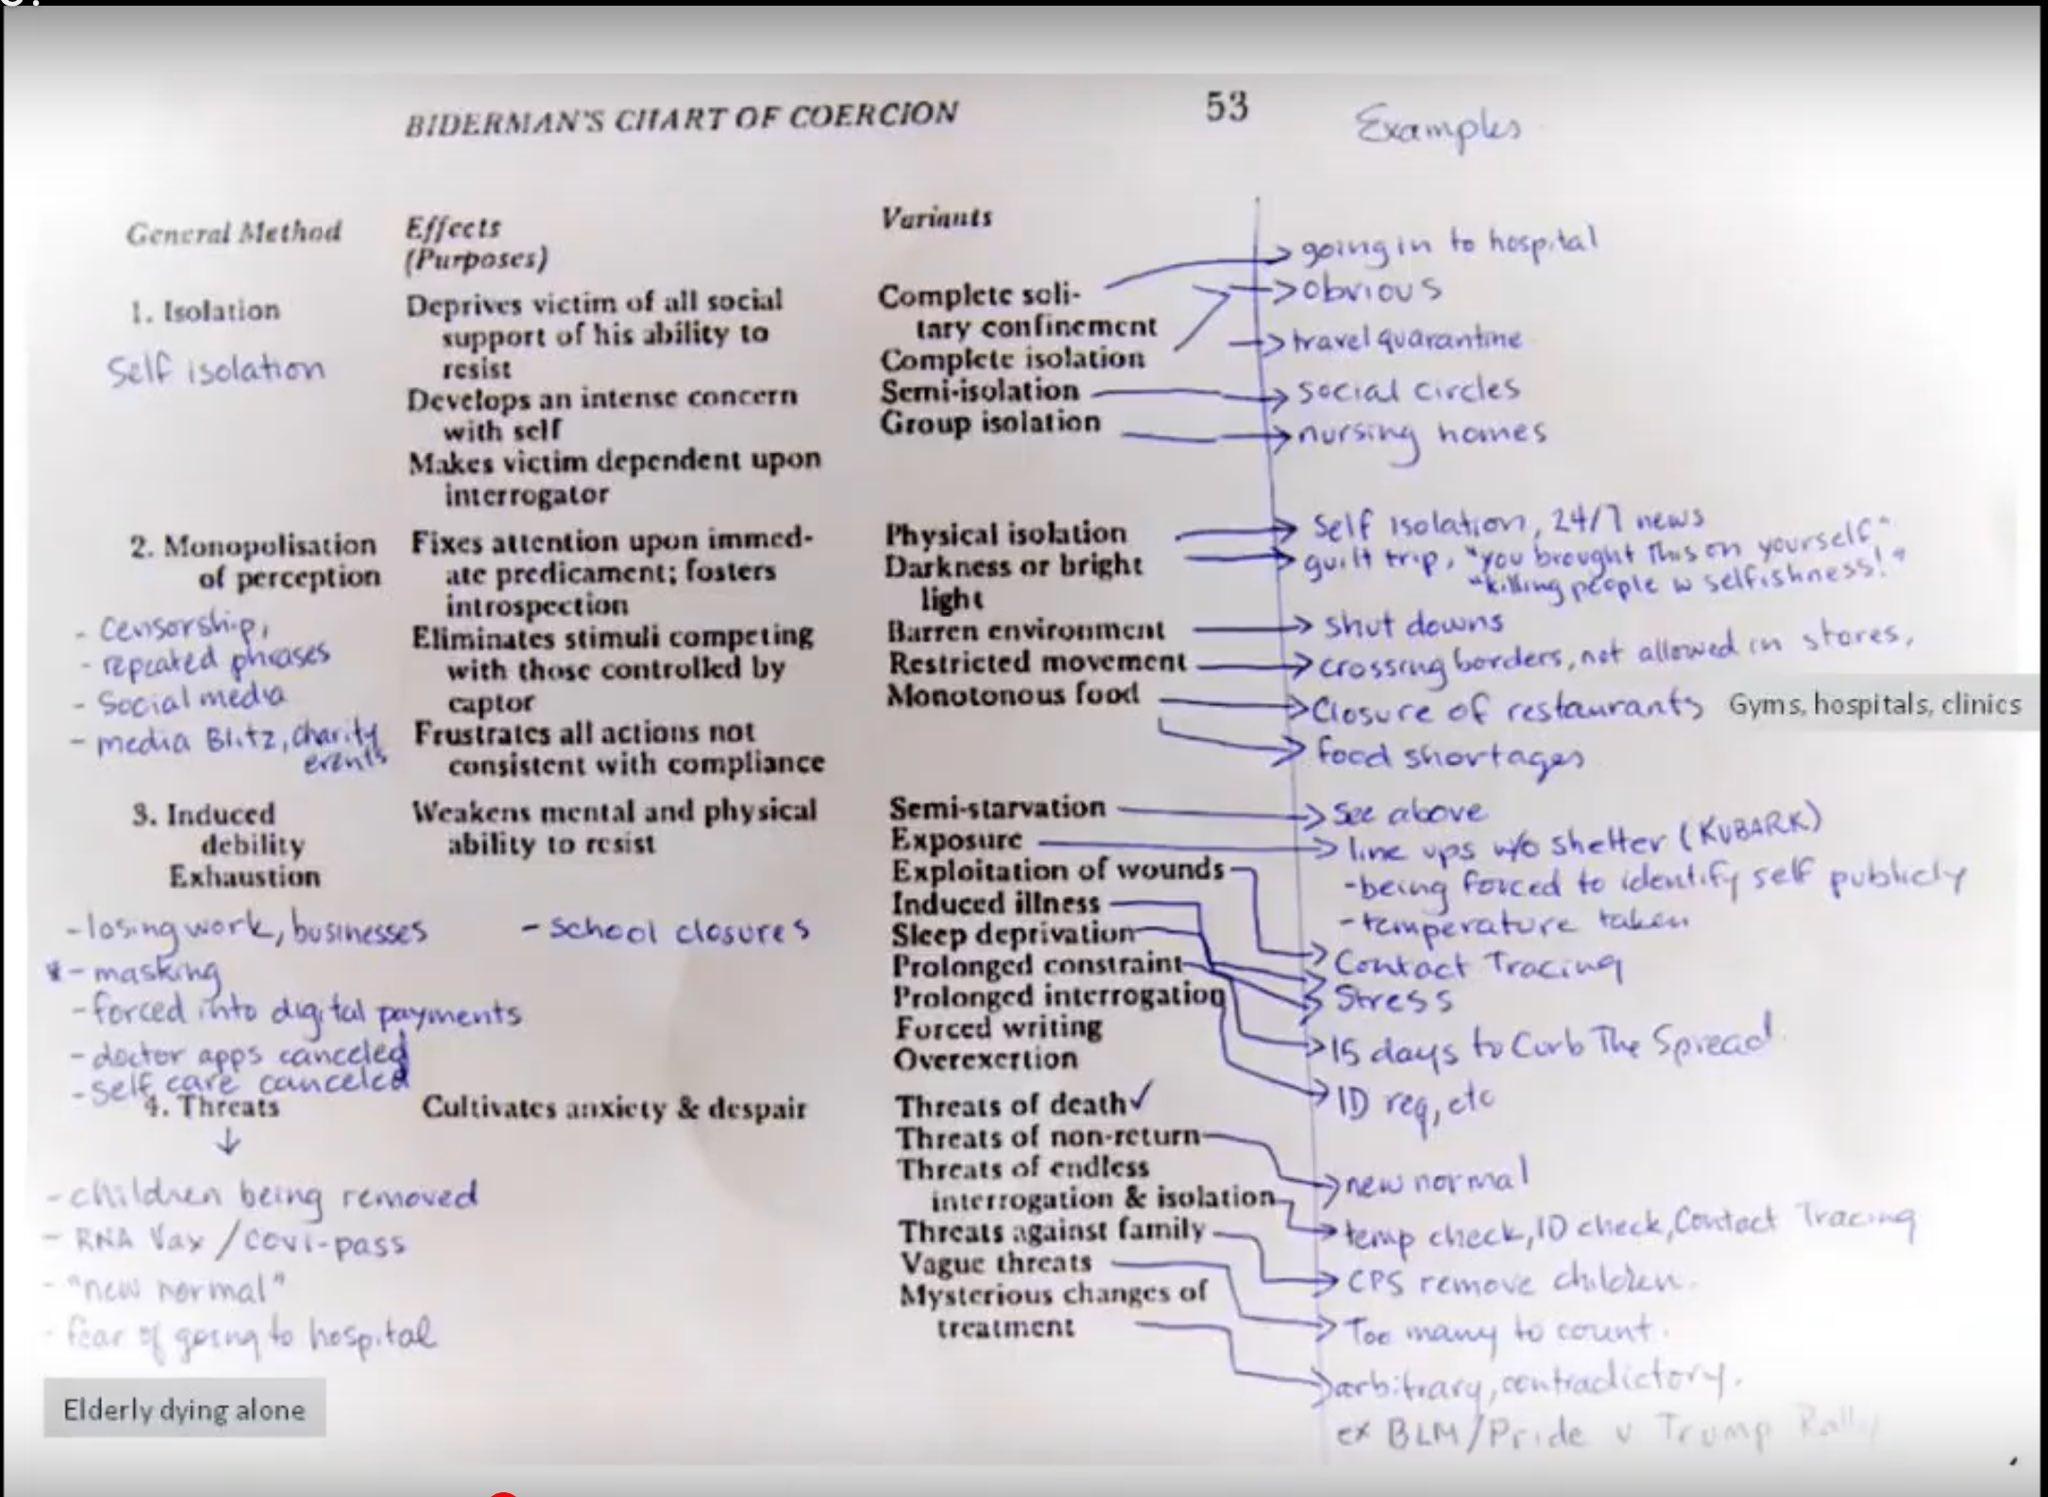 BIDERMAN'S CHART OF COERCION
53
Examples
General Method
Effects
(Purposes)
Variants
1. Isolation
Self isolation
Deprives victim of all social
support of his ability to
resist
Develops an intense concern
with self
Makes victim dependent upon
interrogator
Complete soli-
tary confinement
Complete isolation
Semi-isolation
Group isolation
going in to hospital
obvious
travel quarantine
social circles
nursing homes
2. Monopolisation
of perception
- Censorship,
- repeated phrases
- Social media
- media Blitz, charity
events
Fixes attention upon immed-
ate predicament; fosters
introspection
Eliminates stimuli competing
with those controlled by
captor
Frustrates all actions not
consistent with compliance
Physical isolation
Darkness or bright
light
Barren environment
Restricted movement
Monotonous food
Self isolation, 24/7 news
guilt trip, "you brought this on yourself"
"killing people w selfishness!"
shut downs
crossing borders, not allowed in stores,
Closure of restaurants
Gyms, hospitals, clinics
food shortages
3. Induced
debility
Exhaustion
- losing work, businesses
- school closures
- masking
- forced into digital payments
- doctor apps canceled
- self care canceled
Weakens mental and physical
ability to resist
Semi-starvation
Exposure
Exploitation of wounds
Induced illness
Sleep deprivation
Prolonged constraint
Prolonged interrogation
Forced writing
Overexertion
See above
line ups w/o shelter (KUBARK)
- being forced to identify self publicly
- temperature taken
Contact Tracing
Stress
15 days to Curb The Spread
ID req, etc
4. Threats
- children being removed
- RNA Vax / Covi-pass
- "new normal"
- fear of going to hospital
Elderly dying alone
Cultivates anxiety & despair
Threats of death✓
Threats of non-return
Threats of endless
interrogation & isolation
Threats against family
Vague threats
Mysterious changes of
treatment
new normal
temp check, ID check, Contact Tracing
CPS remove children.
Too many to count.
arbitrary, contradictory.
ex BLM/Pride v Trump Rally